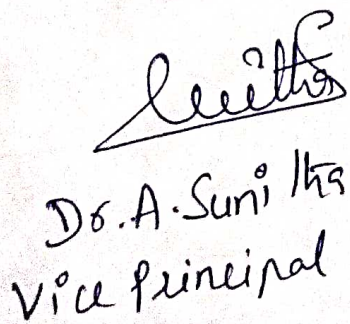 Sunitha
Dr. A. Sunitha
Vice Principal